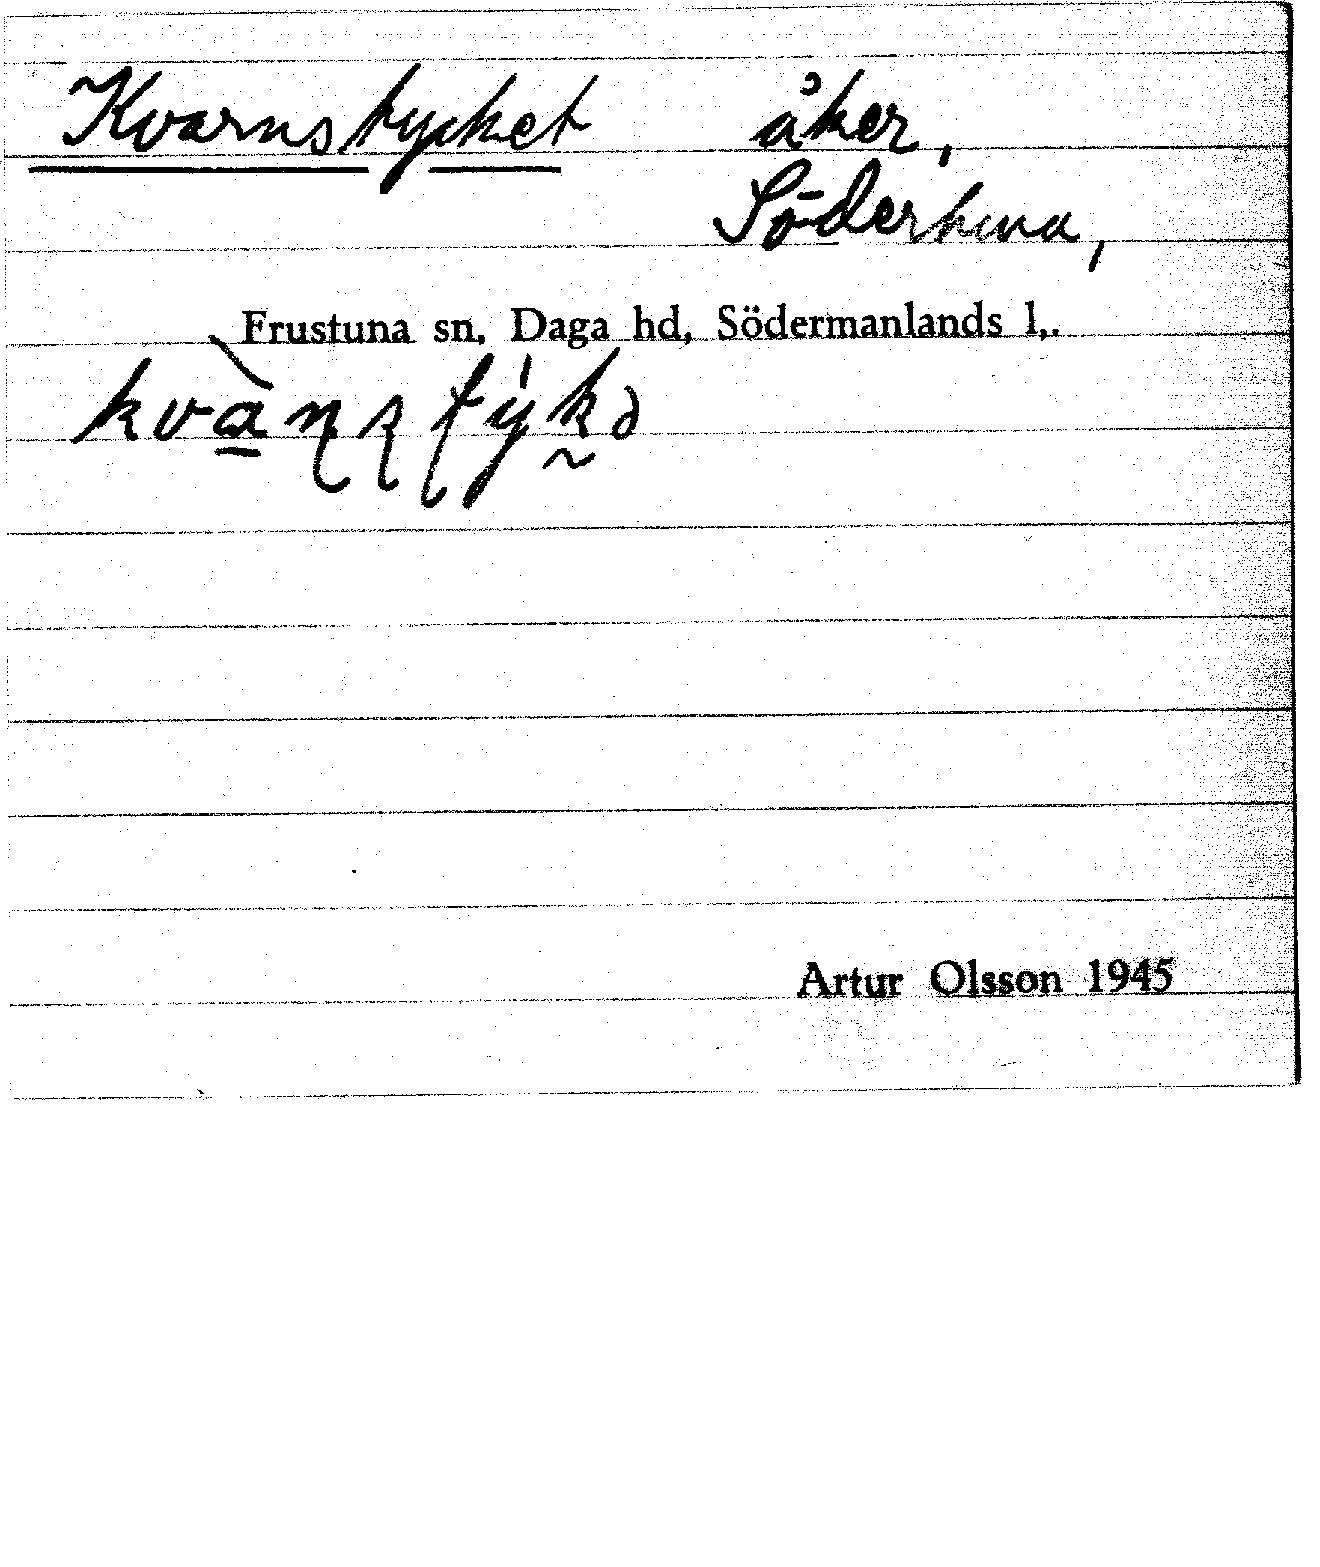 Kvarnstycket åker,
Södertuna,
Frustuna sn, Daga hd, Södermanlands l.
kvàɳʂʈýkə
Artur Olsson 1945